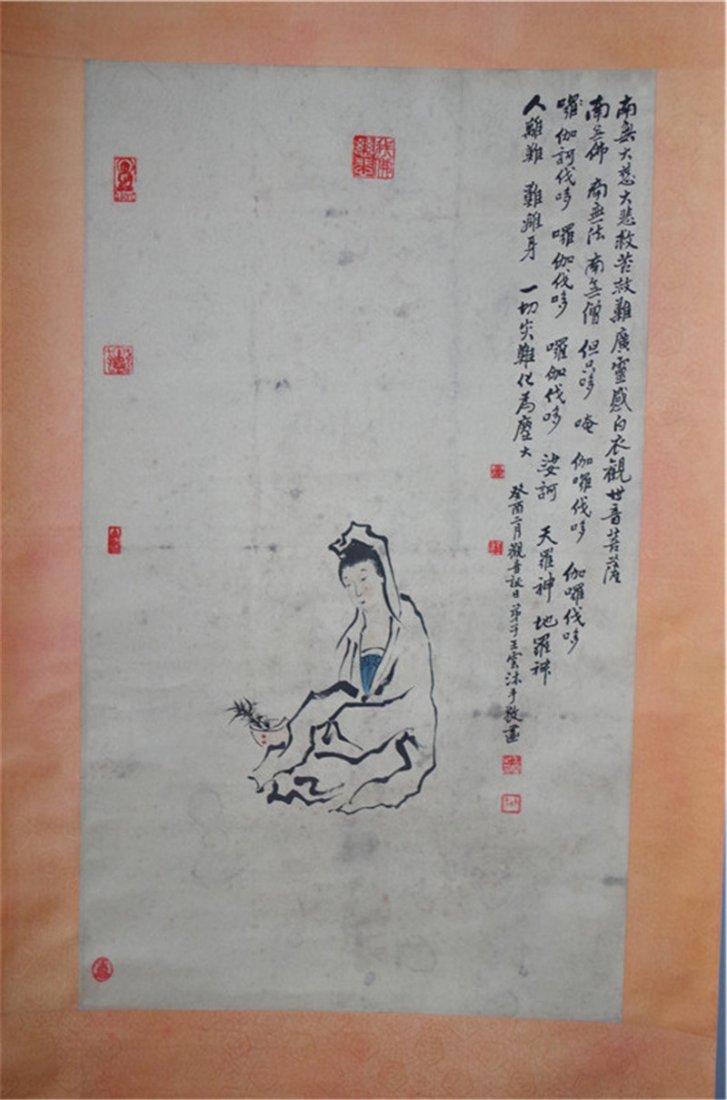 南無大慈大悲救苦救難廣靈感白衣觀世音菩薩
南無佛 南無法 南無僧 但只哆 唵 伽囉伐哆 伽囉伐哆
囉伽訶伐哆 囉伽伐哆 囉伽伐哆 娑訶 天羅神 地羅神
人離難 難離身 一切災難化為塵 大
癸酉二月觀音誕日弟子王雲沐手敬畫